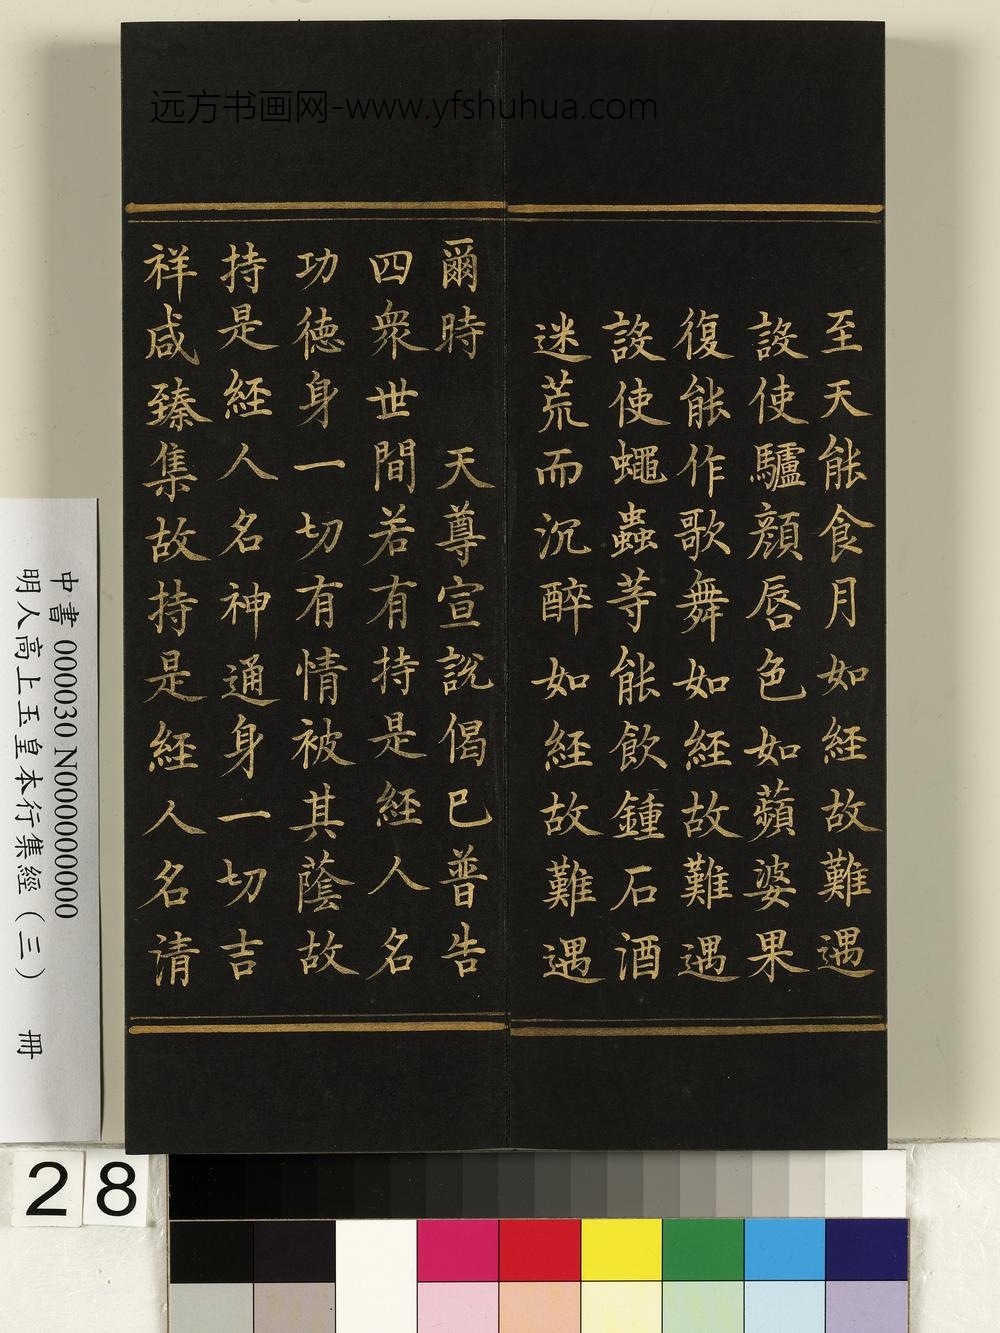 远方书画网-www.yfshuhua.com
至天能食月如經故難遇
設使驢顏唇色如蘋婆果
復能作歌舞如經故難遇
設使蠅蟲等能飲鍾石酒
迷荒而沉醉如經故難遇
爾時 天尊宣說偈已普告
四衆世間若有持是經人名
功德身一切有情被其蔭故
持是經人名神通身一切吉
祥咸臻集故持是經人名清
中書 000030 N000000000
明人高上玉皇本行集經(三) 冊
28